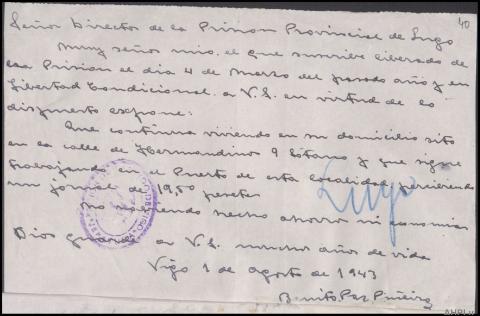 40
Señor Director de la Prision Provincial de Lugo
Muy señor mio, el que suscribe liberado de
esa Prision el dia 4 de Marzo del pasado año y en
Libertad Condicional. a V.S. en virtud de lo
dispuesto expone:
Que continua viviendo en su domicilio sito
en la calle de Hermandino 9 y que sigue
trabajando en el Puerto de esta localidad, percibiendo
un jornal de 19,50 pesetas
no habiendo hecho ahorro ni economias
Dios guarde a V.S. muchos años de vida
Vigo 1 de Agosto de 1943
Benito Paz Piñeiro
Lugo